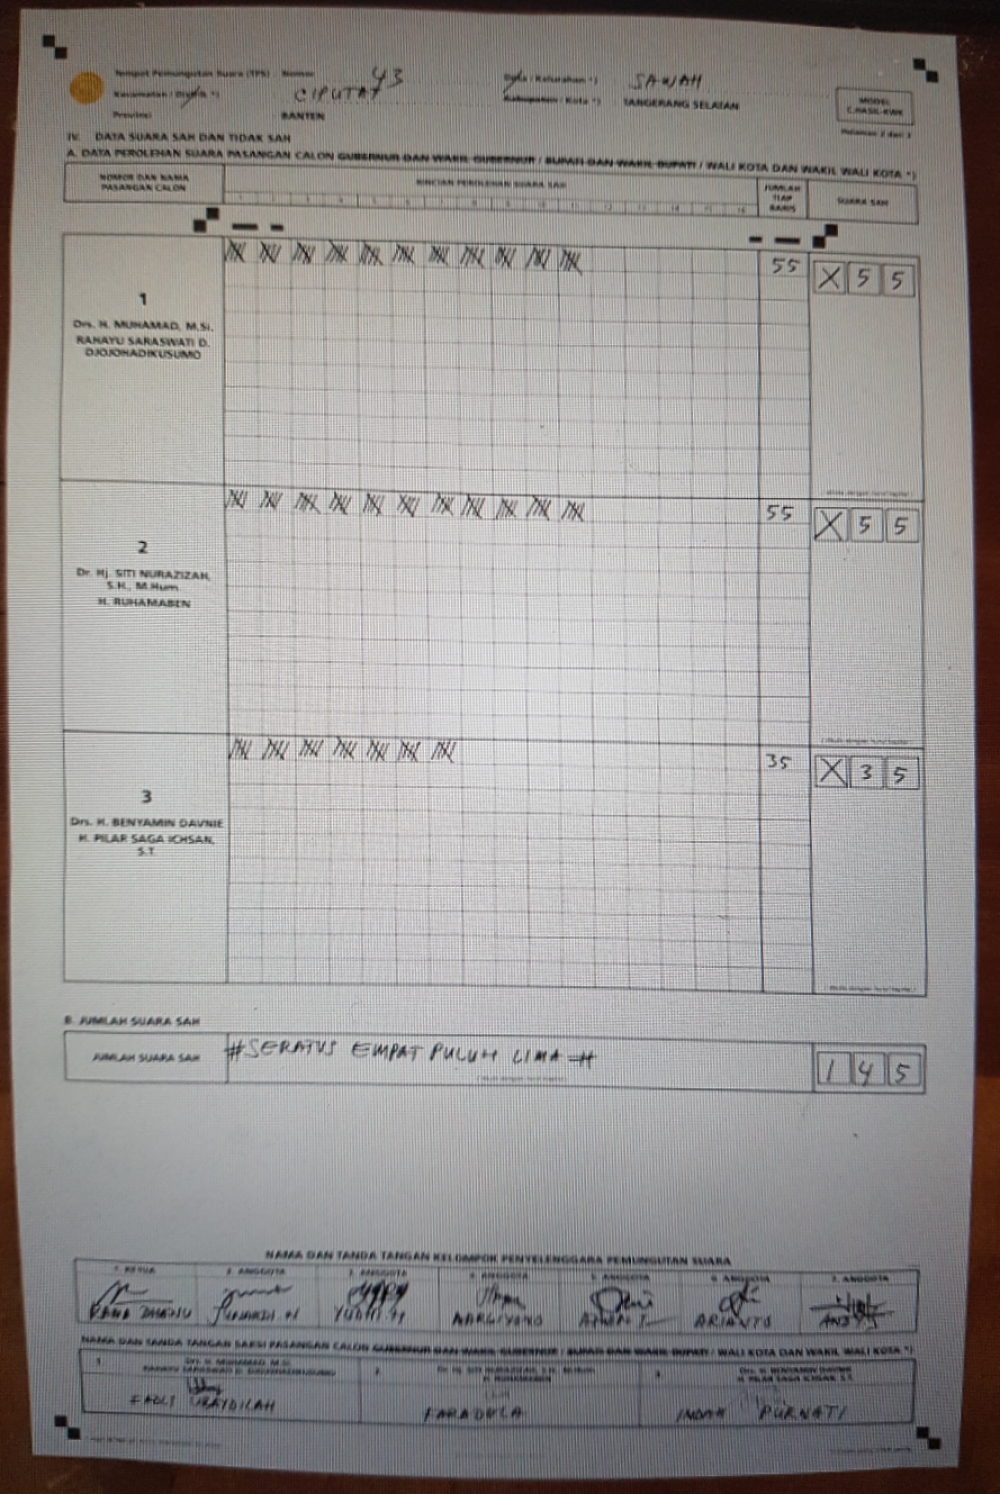 Tempat Pemungutan Suara (TPS) - Nomor 43
Desa / Kelurahan *) SAWAH
Kecamatan / Distrik *) CIPUTAT
Kabupaten / Kota *) TANGERANG SELATAN
Provinsi BANTEN
MODEL
C.HASIL-KWK
Halaman 2 dari 2
IV. DATA SUARA SAH DAN TIDAK SAH
A. DATA PEROLEHAN SUARA PASANGAN CALON GUBERNUR DAN WAKIL GUBERNUR / BUPATI DAN WAKIL BUPATI / WALI KOTA DAN WAKIL WALI KOTA *)
NOMOR DAN NAMA
PASANGAN CALON
RINCIAN PEROLEHAN SUARA SAH
JUMLAH
TIAP
BARIS
SUARA SAH
1 2 3 4 5 6 7 8 9 10 11 12 13 14 15 16
1
Drs. H. MUHAMAD, M.Si.
RAHAYU SARASWATI D.
DJOJOHADIKUSUMO
55
X 5 5
2
Dr. Hj. SITI NURAZIZAH,
S.H., M.Hum
H. RUHAMABEN
55
X 5 5
3
Drs. H. BENYAMIN DAVNIE
H. PILAR SAGA ICHSAN,
S.T
35
X 3 5
B. JUMLAH SUARA SAH
JUMLAH SUARA SAH
# SERATUS EMPAT PULUH LIMA #
1 4 5
NAMA DAN TANDA TANGAN KELOMPOK PENYELENGGARA PEMUNGUTAN SUARA
1. KETUA 2. ANGGOTA 3. ANGGOTA 4. ANGGOTA 5. ANGGOTA 6. ANGGOTA 7. ANGGOTA
NARGIYONO ARIANTO
NAMA DAN TANDA TANGAN SAKSI PASANGAN CALON GUBERNUR DAN WAKIL GUBERNUR / BUPATI DAN WAKIL BUPATI / WALI KOTA DAN WAKIL WALI KOTA *)
1 Drs. H. MUHAMAD, M.Si.
RAHAYU SARASWATI D. DJOJOHADIKUSUMO
2 Dr. Hj. SITI NURAZIZAH, S.H., M.Hum
H. RUHAMABEN
3 Drs. H. BENYAMIN DAVNIE
H. PILAR SAGA ICHSAN, S.T
UBAYDILAH
FARADULA
INDAH PURNATI